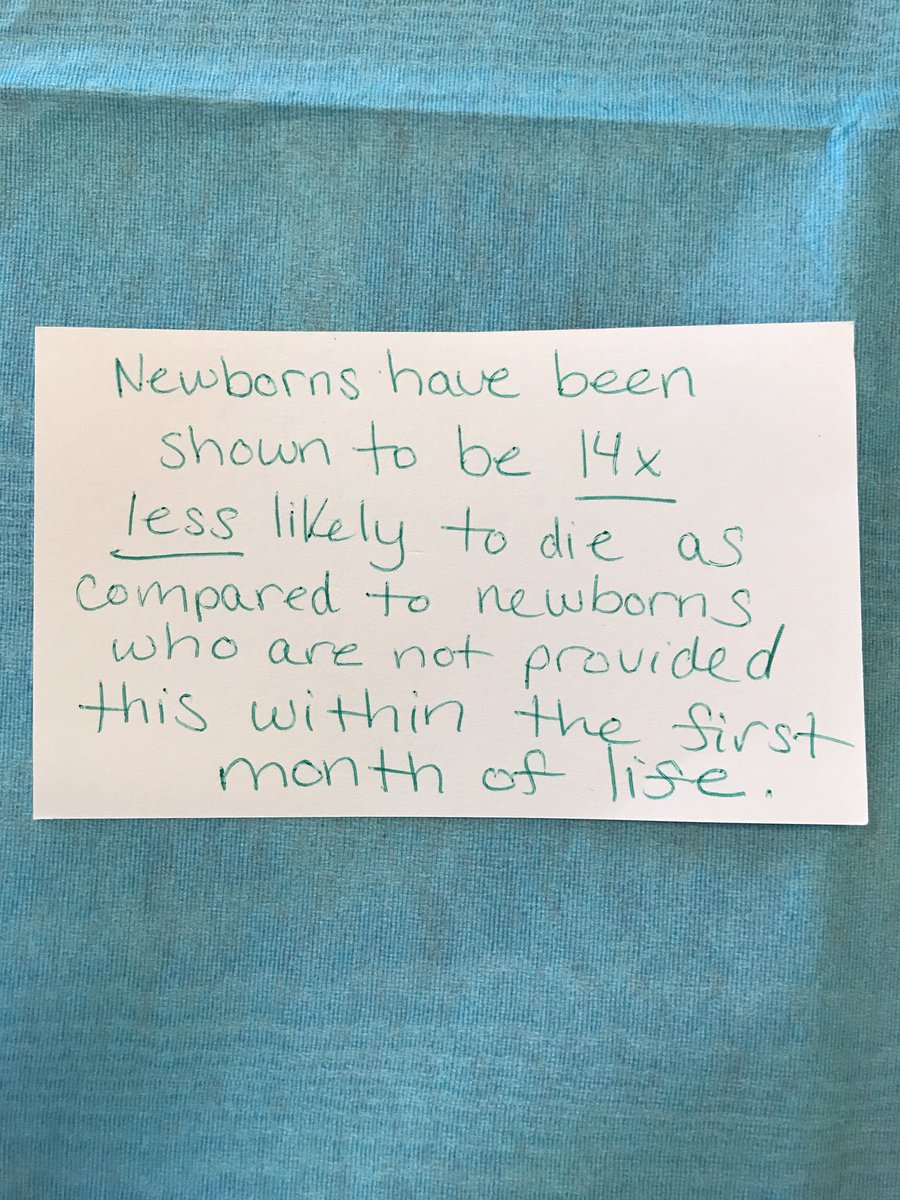 Newborns have been
shown to be 14x
less likely to die as
compared to newborns
who are not provided
this within the first
month of life.